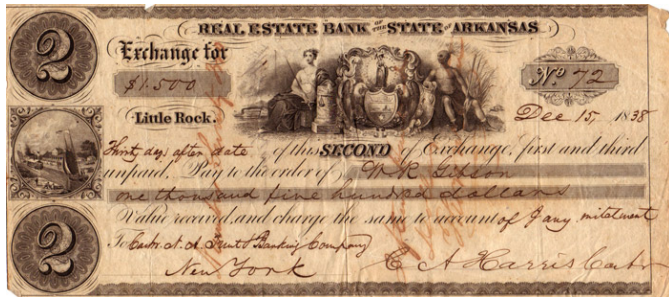 REAL ESTATE BANK OF THE STATE OF ARKANSAS
2
Exchange for
$1.500
No 72
Little Rock.
Dec 15, 1838
days after date of this SECOND of Exchange, first and third
unpaid, Pay to the order of W R Gibson
one thousand five hundred dollars
Value received, and charge the same to account of
2
To Cashr. N. A. Trust & Banking Company
New York
C A Harris Cashr